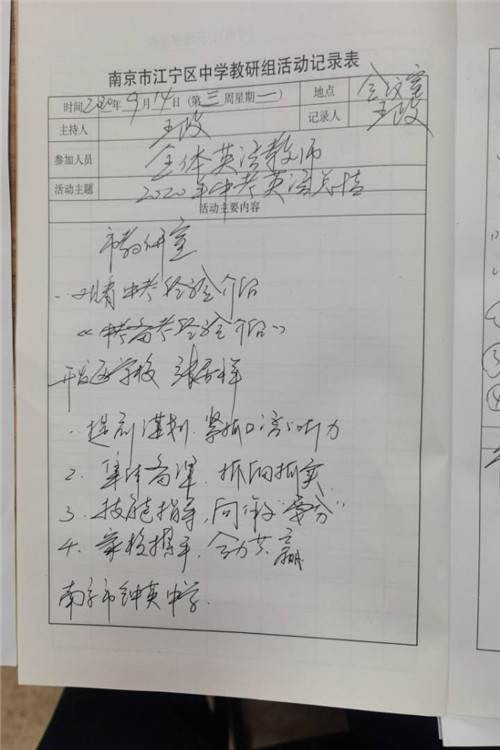 南京市江宁区中学教研组活动记录表
时间 2020年9月14日（第三周星期一） 地点 会议室
主持人 王政 记录人 王政
参加人员 全体英语教师
活动主题 2020年中考英语总结
活动主要内容
市教研室
一. 中考经验介绍
《中考备考经验介绍》
开发区学校 张
1. 提前谋划，紧抓口语听力
2. 集体备课，抓细抓实
3. 技能指导，向 要分
4. 家校携手，合力共赢
南京市钟英中学.